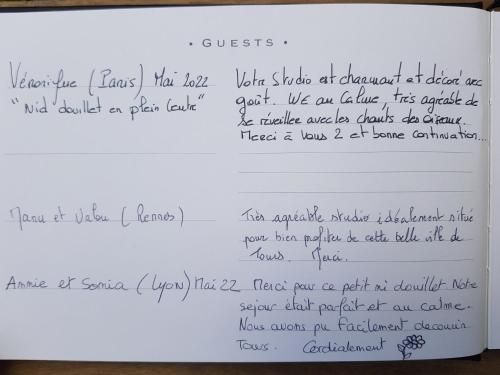 • GUESTS •
Véronique (Paris) Mai 2022
"Nid douillet en plein centre"
Votre Studio est charmant et décoré avec
goût. WE au Calme, très agréable de
se réveiller avec les chants des oiseaux.
Merci à vous 2 et bonne continuation...
Manu et Valou (Rennes)
Très agréable studio idéalement situé
pour bien profiter de cette belle ville de
Tours. Merci.
Annie et Sonia (Lyon) Mai 22
Merci pour ce petit ni douillet Notre
sejour était parfait et au calme.
Nous avons pu facilement decouvrir
Tours. Cordialement